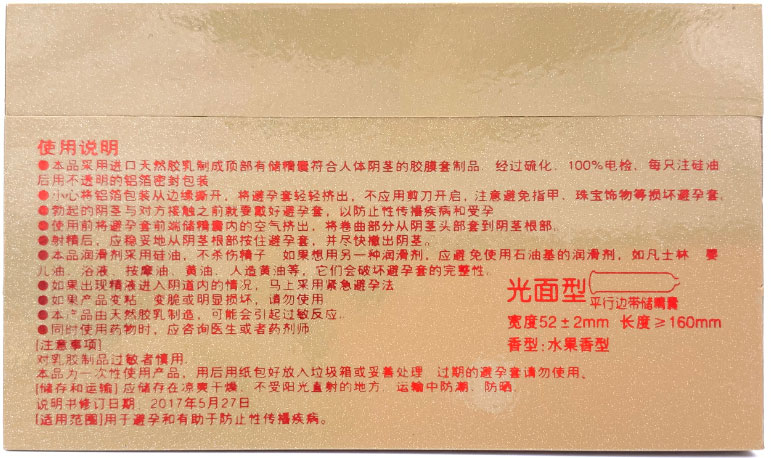 使用说明
●本品采用进口天然胶乳制成顶部有储精囊符合人体阴茎的胶膜套制品 经过硫化、100%电检,每只注硅油
后用不透明的铝箔密封包装
●小心将铝箔包装从边缘撕开,将避孕套轻轻挤出,不应用剪刀开启,注意避免指甲、珠宝饰物等损坏避孕套。
●勃起的阴茎与对方接触之前就要戴好避孕套,以防止性传播疾病和受孕
●使用前将避孕套前端储精囊内的空气挤出,将卷曲部分从阴茎头部套到阴茎根部.
●射精后,应稳妥地从阴茎根部按住避孕套,并尽快撤出阴茎。
●本品润滑剂采用硅油,不杀伤精子 如果想用另一种润滑剂,应避免使用石油基的润滑剂,如凡士林 婴
儿油、浴液、按摩油、黄油、人造黄油等,它们会破坏避孕套的完整性.
●如果出现精液进入阴道内的情况,马上采用紧急避孕法
●如果产品变粘、变脆或明显损坏,请勿使用
●本产品由天然胶乳制造,可能会引起过敏反应.
●同时使用药物时,应咨询医生或者药剂师
[注意事项]
对乳胶制品过敏者慎用.
本品为一次性使用产品,用后用纸包好放入垃圾箱或妥善处理 过期的避孕套请勿使用。
[储存和运输]应储存在凉爽干燥、不受阳光直射的地方 运输中防潮、防晒
说明书修订日期:2017年5月27日
[适用范围]用于避孕和有助于防止性传播疾病。
光面型
平行边带储精囊
宽度52±2mm 长度≥160mm
香型:水果香型